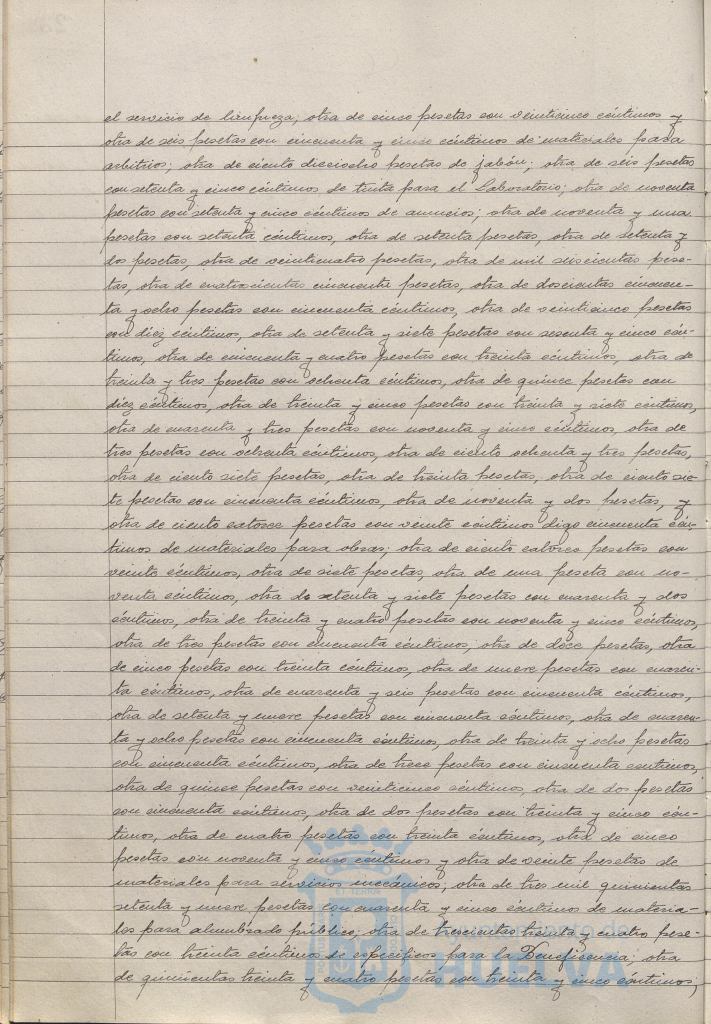 el servicio de limpieza; otra de cinco pesetas con veinticinco céntimos y
otra de seis pesetas con cincuenta y cinco céntimos de materiales para
arbitrios; otra de ciento dieciocho pesetas de jabón; otra de seis pesetas
con setenta y cinco céntimos de tinta para el Laboratorio; otra de noventa
pesetas con setenta y cinco céntimos de anuncios; otra de noventa y una
pesetas con setenta céntimos, otra de setenta pesetas, otra de setenta y
dos pesetas, otra de veinticuatro pesetas, otra de mil seiscientas pese-
tas, otra de cuatrocientas cincuenta pesetas, otra de doscientas cincuen-
ta y ocho pesetas con cincuenta céntimos, otra de veinticinco pesetas
con diez céntimos, otra de setenta y siete pesetas con sesenta y cinco cén-
timos, otra de cincuenta y cuatro pesetas con treinta céntimos, otra de
treinta y tres pesetas con ochenta céntimos, otra de quince pesetas con
diez céntimos, otra de treinta y cinco pesetas con treinta y siete céntimos,
otra de cuarenta y tres pesetas con noventa y cinco céntimos, otra de
tres pesetas con ochenta céntimos, otra de ciento ochenta y tres pesetas,
otra de ciento siete pesetas, otra de treinta pesetas, otra de ciento sie-
te pesetas con cincuenta céntimos, otra de noventa y dos pesetas, y
otra de ciento catorce pesetas con veinte céntimos digo cincuenta cén-
timos de materiales para obras; otra de ciento catorce pesetas con
veinte céntimos, otra de siete pesetas, otra de una peseta con no-
venta céntimos, otra de setenta y siete pesetas con cuarenta y dos
céntimos, otra de treinta y cuatro pesetas con noventa y cinco céntimos,
otra de tres pesetas con cincuenta céntimos, otra de doce pesetas, otra
de cinco pesetas con treinta céntimos, otra de nueve pesetas con cuaren-
ta céntimos, otra de cuarenta y seis pesetas con cincuenta céntimos,
otra de setenta y nueve pesetas con cincuenta céntimos, otra de cuaren-
ta y ocho pesetas con cincuenta céntimos, otra de treinta y ocho pesetas
con cincuenta céntimos, otra de trece pesetas con cincuenta céntimos,
otra de quince pesetas con veinticinco céntimos, otra de dos pesetas
con cincuenta céntimos, otra de dos pesetas con treinta y cinco cén-
timos, otra de cuatro pesetas con treinta céntimos, otra de cinco
pesetas con noventa y cinco céntimos y otra de veinte pesetas de
materiales para servicios mecánicos; otra de tres mil quinientas
setenta y nueve pesetas con cuarenta y cinco céntimos de materia-
les para alumbrado público; otra de trescientas treinta y cuatro pese-
tas con treinta céntimos de específicos para la Beneficencia; otra
de quinientas treinta y cuatro pesetas con treinta y cinco céntimos;
HUELVA